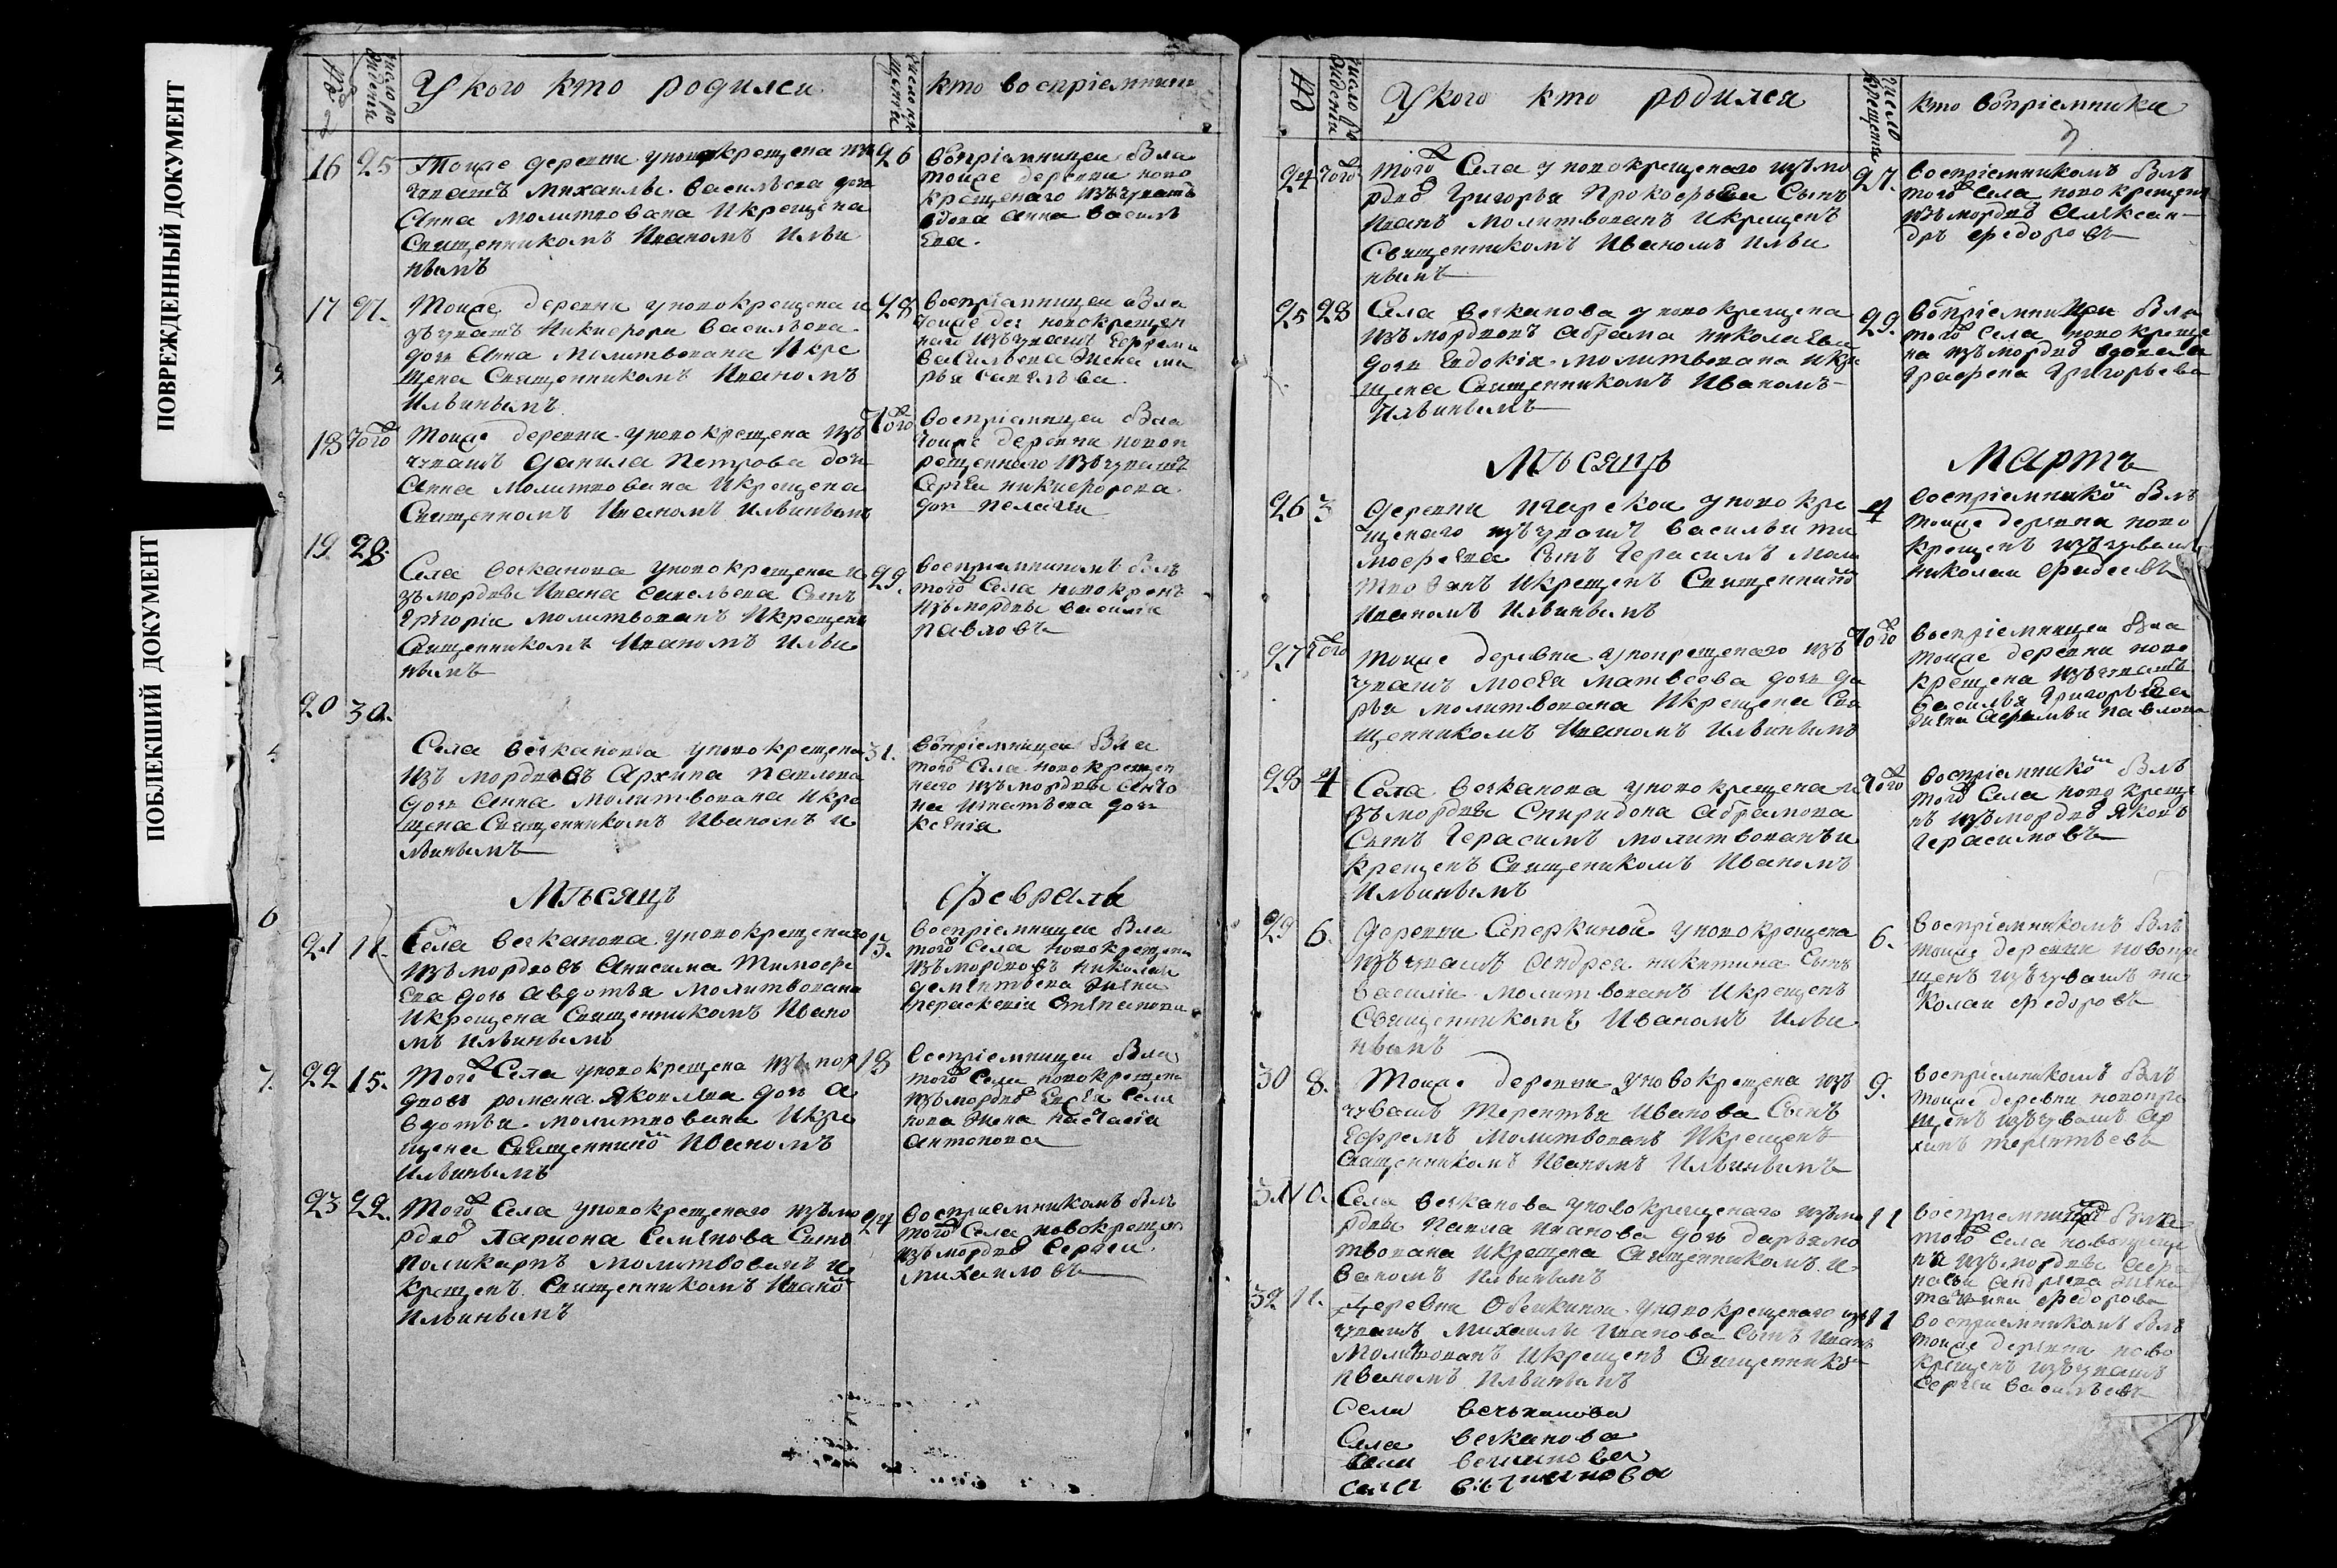 ПОВРЕЖДЕННЫЙ ДОКУМЕНТ
ПОБЛЕКШИЙ ДОКУМЕНТ
№
число рождения
У кого кто родился
число крещенія
кто воспріемники
16 25 Тоиже деревни уновокрещена изъ
чувашъ Михаилы Васильева дочь
Анна молитвована И крещена
Священникомъ Иваномъ Ильи
нымъ
26 воспріемницеи была
тоиже деревни ново
крещенаго изъ чувашъ
вдова Анна Василь
ева.
17 27. Тоиже деревни уновокрещена и
зъ чувашъ Никифора Васильева
дочь Анна Молитвована И кре
щена Священникомъ Иваномъ
Ильинымъ
28 воспріемницеи была
тоиже дер новокрещен
наго изъ чувашъ Ефрема
Васильева жена ма
рья савельева.
18 того Тоиже деревни уновокрещена изъ
чувашъ Данила Петрова дочь
Анна молитвована И крещена
Священномъ Иваномъ Ильинымъ
того воспріемницеи была
тоиже деревни новок
рещеннаго изъ чувашъ
Сергея никифорова
дочь пелагея
19. 28.
Села вечканова уновокрещена и
зъ мордвы Ивана савельева Сынъ
Григории молитвованъ И крещенъ
Священникомъ Иваномъ Ильи
нымъ
29. воспріемникомъ былъ
того Села новокрещенъ
изъ мордвы василіи
павловъ
20 30.
Села вечканова уновокрещена
изъ мордвовъ Архипа павлова
дочь Анна молитвована И кре
щена Священникомъ Иваномъ и
льинымъ
31. воспріемницеи была
того Села новокрещен
наго изъ мордвы Анто
на Игнатьева дочь
ксенія
Мѣсяцъ Февраль
21 11. Села вечканова уновокрещенаго
изъ мордвовъ Анисима Тимофе
ева дочь авдотья молитвована
И крещена Священникомъ Ивано
мъ Ильинымъ
13. воспріемницеи была
того Села новокрещена
изъ мордвовъ николая
дементьева жена
параскевія степанова
22 15. Того Села уновокрещена изъ мор
двовъ романа Яковлева дочь а
вдотья молитвована И кре
щена Священнико Иваномъ
Ильинымъ
18 воспріемницеи была
того Села новокрещена
изъ мордво Евсея Семе
нова жена настасія
антонова
23 22. Того Села уновокрещенаго изъ мо
рдво Лариона Семенова Сынъ
поликарпъ молитвованъ и
крещенъ Священникомъ Ивано
Ильинымъ
24 воспріемникомъ былъ
того Села новокрещен
изъ мордво Сергеи
михаиловъ
№
число рожденія
У кого кто родился
число крещения
кто воспріемники
24 того того Села у новокрещенаго изъ мо
рдво Григорья Прокофьева Сынъ
Иванъ молитвованъ И крещенъ
Священникомъ Иваномъ Ильи
нымъ
27. воспріемникомъ былъ
того Села новокрещенъ
изъ мордво Алексан
дръ Федоровъ
25 28 Села вечканова у новокрещена
изъ мордвовъ Абрама николаева
дочь Евдокія молитвована и кре
щена Священникомъ Иваномъ
Ильинымъ
29. воспріемницеи была
того Села новокреще
на изъ мордво вдова
Графена Григорьева
Мѣсяцъ Мартъ
26 3 Деревни уновокре
щенаго изъ чувашъ Василья ти
мофеева Сынъ Герасимъ моли
твованъ И крещенъ Священнико
Иваномъ Ильинымъ
4 воспріемнико былъ
тоиже деревни ново
крещенъ изъ чувашъ
николаи Фадеевъ
27 того Тоиже деревни уновкрещенаго изъ
чувашъ Мосея Матвеева дочь да
рья молитвована И крещена Свя
щенникомъ Иваномъ Ильинымъ
того воспріемницеи была
тоиже деревни ново
крещена изъ чувашъ
Василья Григорьева
жена павлова
28 4 Села вечканова уновокрещена и
зъ мордвы Спиридона Абрамова
Сынъ Герасимъ молитвованъ и
крещенъ Священикомъ Иваномъ
Ильинымъ
того воспріемнико былъ
того Села новокреще
нъ изъ мордво Яковъ
Герасимовъ
29 6. Деревни Саперкиной уновокрещена
изъ чувашъ Андрея никитина Сынъ
Василіи молитвованъ И крещенъ
Священникомъ Иваномъ Ильи
нымъ
6. воспріемникомъ былъ
тоиже деревни новокре
щенъ изъ чувашъ ни
колаи Федоровъ
30 8. Тоиже деревни уновокрещена изъ
чувашъ Терентья Иванова Сынъ
Ефремъ молитвованъ И крещенъ
Священникомъ Иваномъ Ильинымъ
9. воспріемникомъ былъ
тоиже деревни новокре
щенъ изъ чувашъ Ар
хипъ терентьевъ
31 10. Села вечканова уновокрещенаго изъ мо
рдвы павла иванова дочь дарья мо
твована И крещена Священникомъ И
ваномъ Ильинымъ
11 воспріемницеи была
того Села новокреще
на изъ мордвы Афа
насья Андреева жена
татьяна Федорова
32 11. Деревни уновокрещенаго изъ
чувашъ Михаилы Иванова Сынъ Иванъ
Молитвованъ И крещенъ Священнико
Иваномъ Ильинымъ
11 воспріемникомъ былъ
тоиже деревни ново
крещенъ изъ чувашъ
Сергеи васильевъ
Села вечканова
Села вечканова